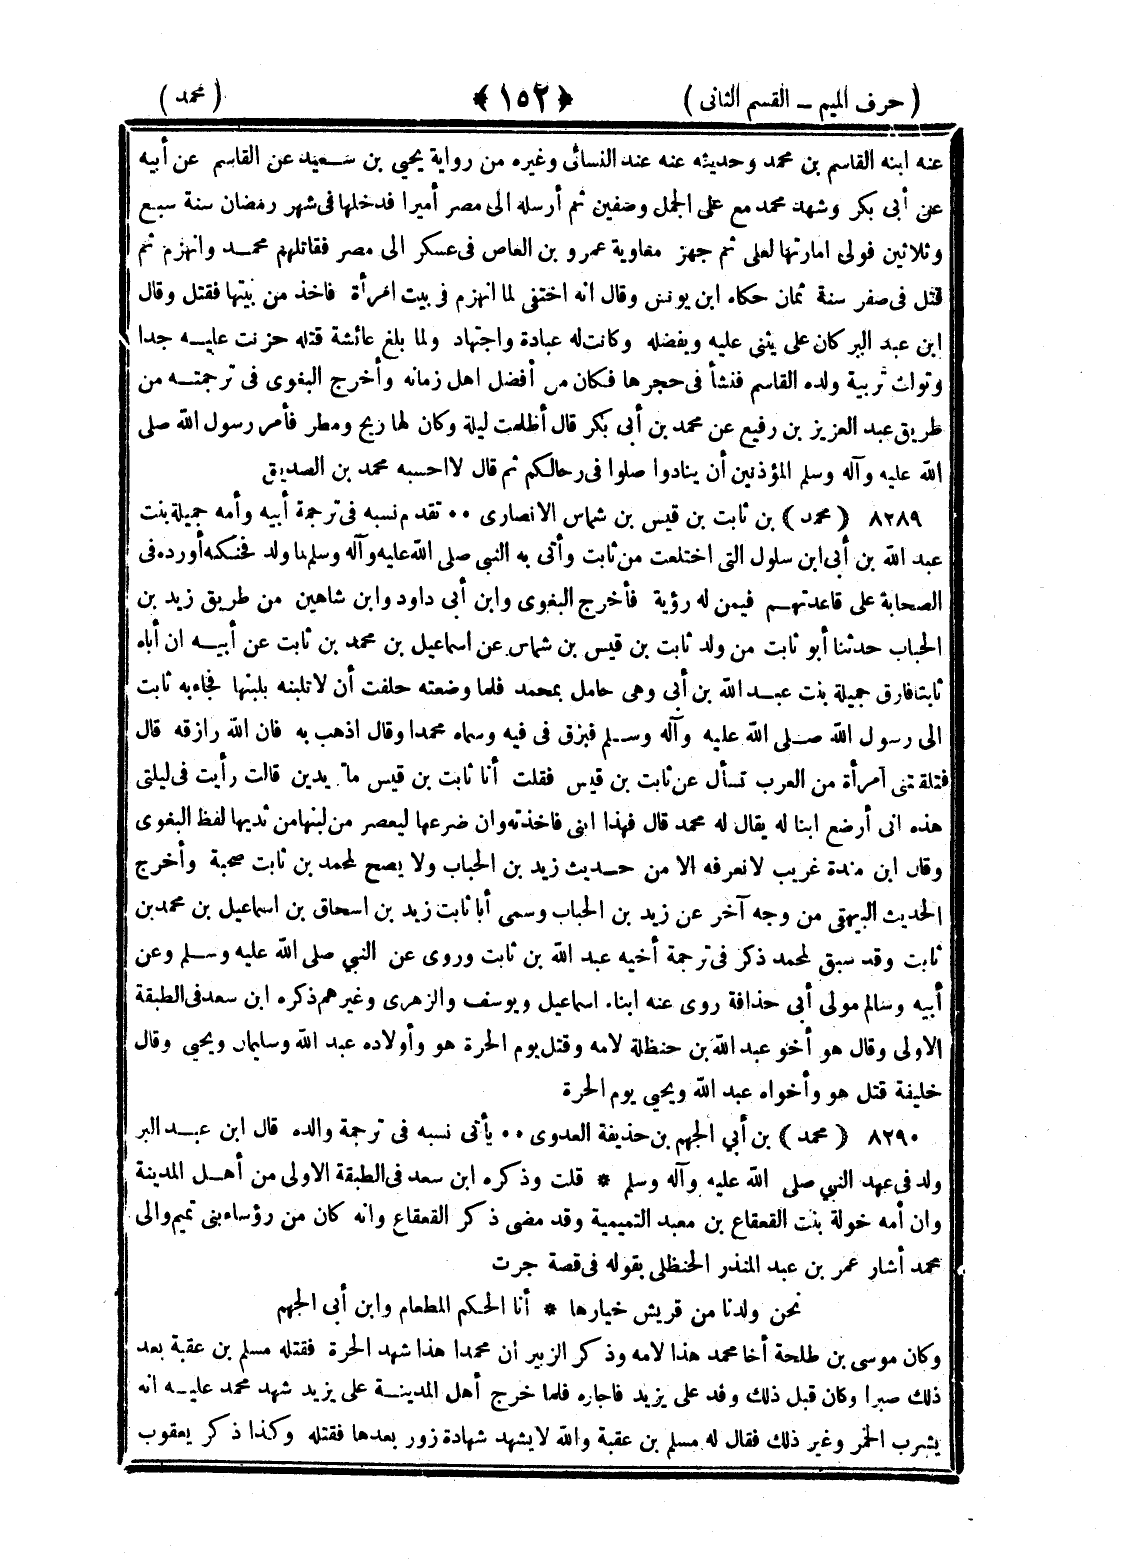 ( حرف الميم – القسم الثانى ) ﴿ ١٥٢ ﴾ ( محمد )
عنه ابنه القاسم بن محمد وحديثه عنه عند النسائى وغيره من رواية يحيى بن سعيد عن القاسم عن أبيه
عن أبى بكر وشهد محمد مع على الجمل وصفين ثم أرسله الى مصر أميرا فدخلها فى شهر رمضان سنة سبع
وثلاثين فولى امارتها لعلى ثم جهز معاوية عمرو بن العاص فى عسكر الى مصر فقاتلهم محمد وانهزم ثم
قتل فى صفر سنة ثمان حكاه ابن يونس وقال انه اختفى لما انهزم فى بيت امرأة فاخذ من بيتها فقتل وقال
ابن عبد البر كان على يثنى عليه ويفضله وكانت له عبادة واجتهاد ولما بلغ عائشة قتله حزنت عليه جدا
وتولت تربية ولده القاسم فنشأ فى حجرها فكان من أفضل اهل زمانه وأخرج البغوى فى ترجمته من
طريق عبد العزيز بن رفيع عن محمد بن أبى بكر قال أظلمت ليلة وكان لها ريح ومطر فأمر رسول الله صلى
الله عليه وآله وسلم المؤذنين أن ينادوا صلوا فى رحالكم ثم قال لا احسبه محمد بن الصديق
٨٢٨٩ ( محمد ) بن ثابت بن قيس بن شماس الانصارى ۰۰ تقدم نسبه فى ترجمة أبيه وأمه جميلة بنت
عبد الله بن أبى ابن سلول التى اختلعت من ثابت وأتى به النبي صلى الله عليه وآله وسلم لما ولد فحنكه أورده فى
الصحابة على قاعدتهم فيمن له رؤية فأخرج البغوى وابن أبى داود وابن شاهين من طريق زيد بن
الحباب حدثنا أبو ثابت من ولد ثابت بن قيس بن شماس عن اسماعيل بن محمد بن ثابت عن أبيه ان أباه
ثابتا فارق جميلة بنت عبد الله بن أبى وهى حامل بمحمد فلما وضعته حلفت أن لا تلبنه بلبنها فجاء به ثابت
الى رسول الله صلى الله عليه وآله وسلم فبزق فى فيه وسماه محمدا وقال اذهب به فان الله رازقه قال
فتلقتنى امرأة من العرب تسأل عن ثابت بن قيس فقلت أنا ثابت بن قيس ما تريدين قالت رأيت فى ليلتى
هذه انى أرضع ابنا له يقال له محمد قال فهذا ابنى فاخذته وان ضرعها ليعصر من لبنها من ثديها لفظ البغوى
وقال ابن مندة غريب لا نعرفه الا من حديث زيد بن الحباب ولا يصح لمحمد بن ثابت صحبة وأخرج
الحديث البيهقى من وجه آخر عن زيد بن الحباب وسمى أبا ثابت زيد بن اسحاق بن اسماعيل بن محمد بن
ثابت وقد سبق لمحمد ذكر فى ترجمة أخيه عبد الله بن ثابت وروى عن النبي صلى الله عليه وسلم وعن
أبيه وسالم مولى أبي حذافة روى عنه ابناه اسماعيل ويوسف والزهرى وغيرهم ذكره ابن سعد فى الطبقة
الاولى وقال هو أخو عبد الله بن حنظلة لامه وقتل يوم الحرة هو وأولاده عبد الله وسليمان ويحيى وقال
خليفة قتل هو وأخواه عبد الله ويحيى يوم الحرة
٨٢٩٠ ( محمد ) بن أبي الجهم بن حذيفة العدوى ۰۰ يأتى نسبه فى ترجمة والده قال ابن عبد البر
ولد فى عهد النبي صلى الله عليه وآله وسلم * قلت وذكره ابن سعد فى الطبقة الاولى من أهل المدينة
وان أمه خولة بنت القعقاع بن معبد التميمية وقد مضى ذكر القعقاع وانه كان من رؤساء بنى تميم والى
محمد أشار عمر بن عبد المنذر الحنظلى بقوله فى قصة جرت
نحن ولدنا من قريش خيارها * أنا الحكم المطعام وابن أبى الجهم
وكان موسى بن طلحة أخا محمد هذا لامه وذكر الزبير ان محمدا هذا شهد الحرة فقتله مسلم بن عقبة بعد
ذلك صبرا وكان قبل ذلك وفد على يزيد فاجاره فلما خرج أهل المدينة على يزيد شهد محمد عليه انه
يشرب الخمر وغير ذلك فقال له مسلم بن عقبة والله لا يشهد شهادة زور بعدها فقتله وكذا ذكر يعقوب